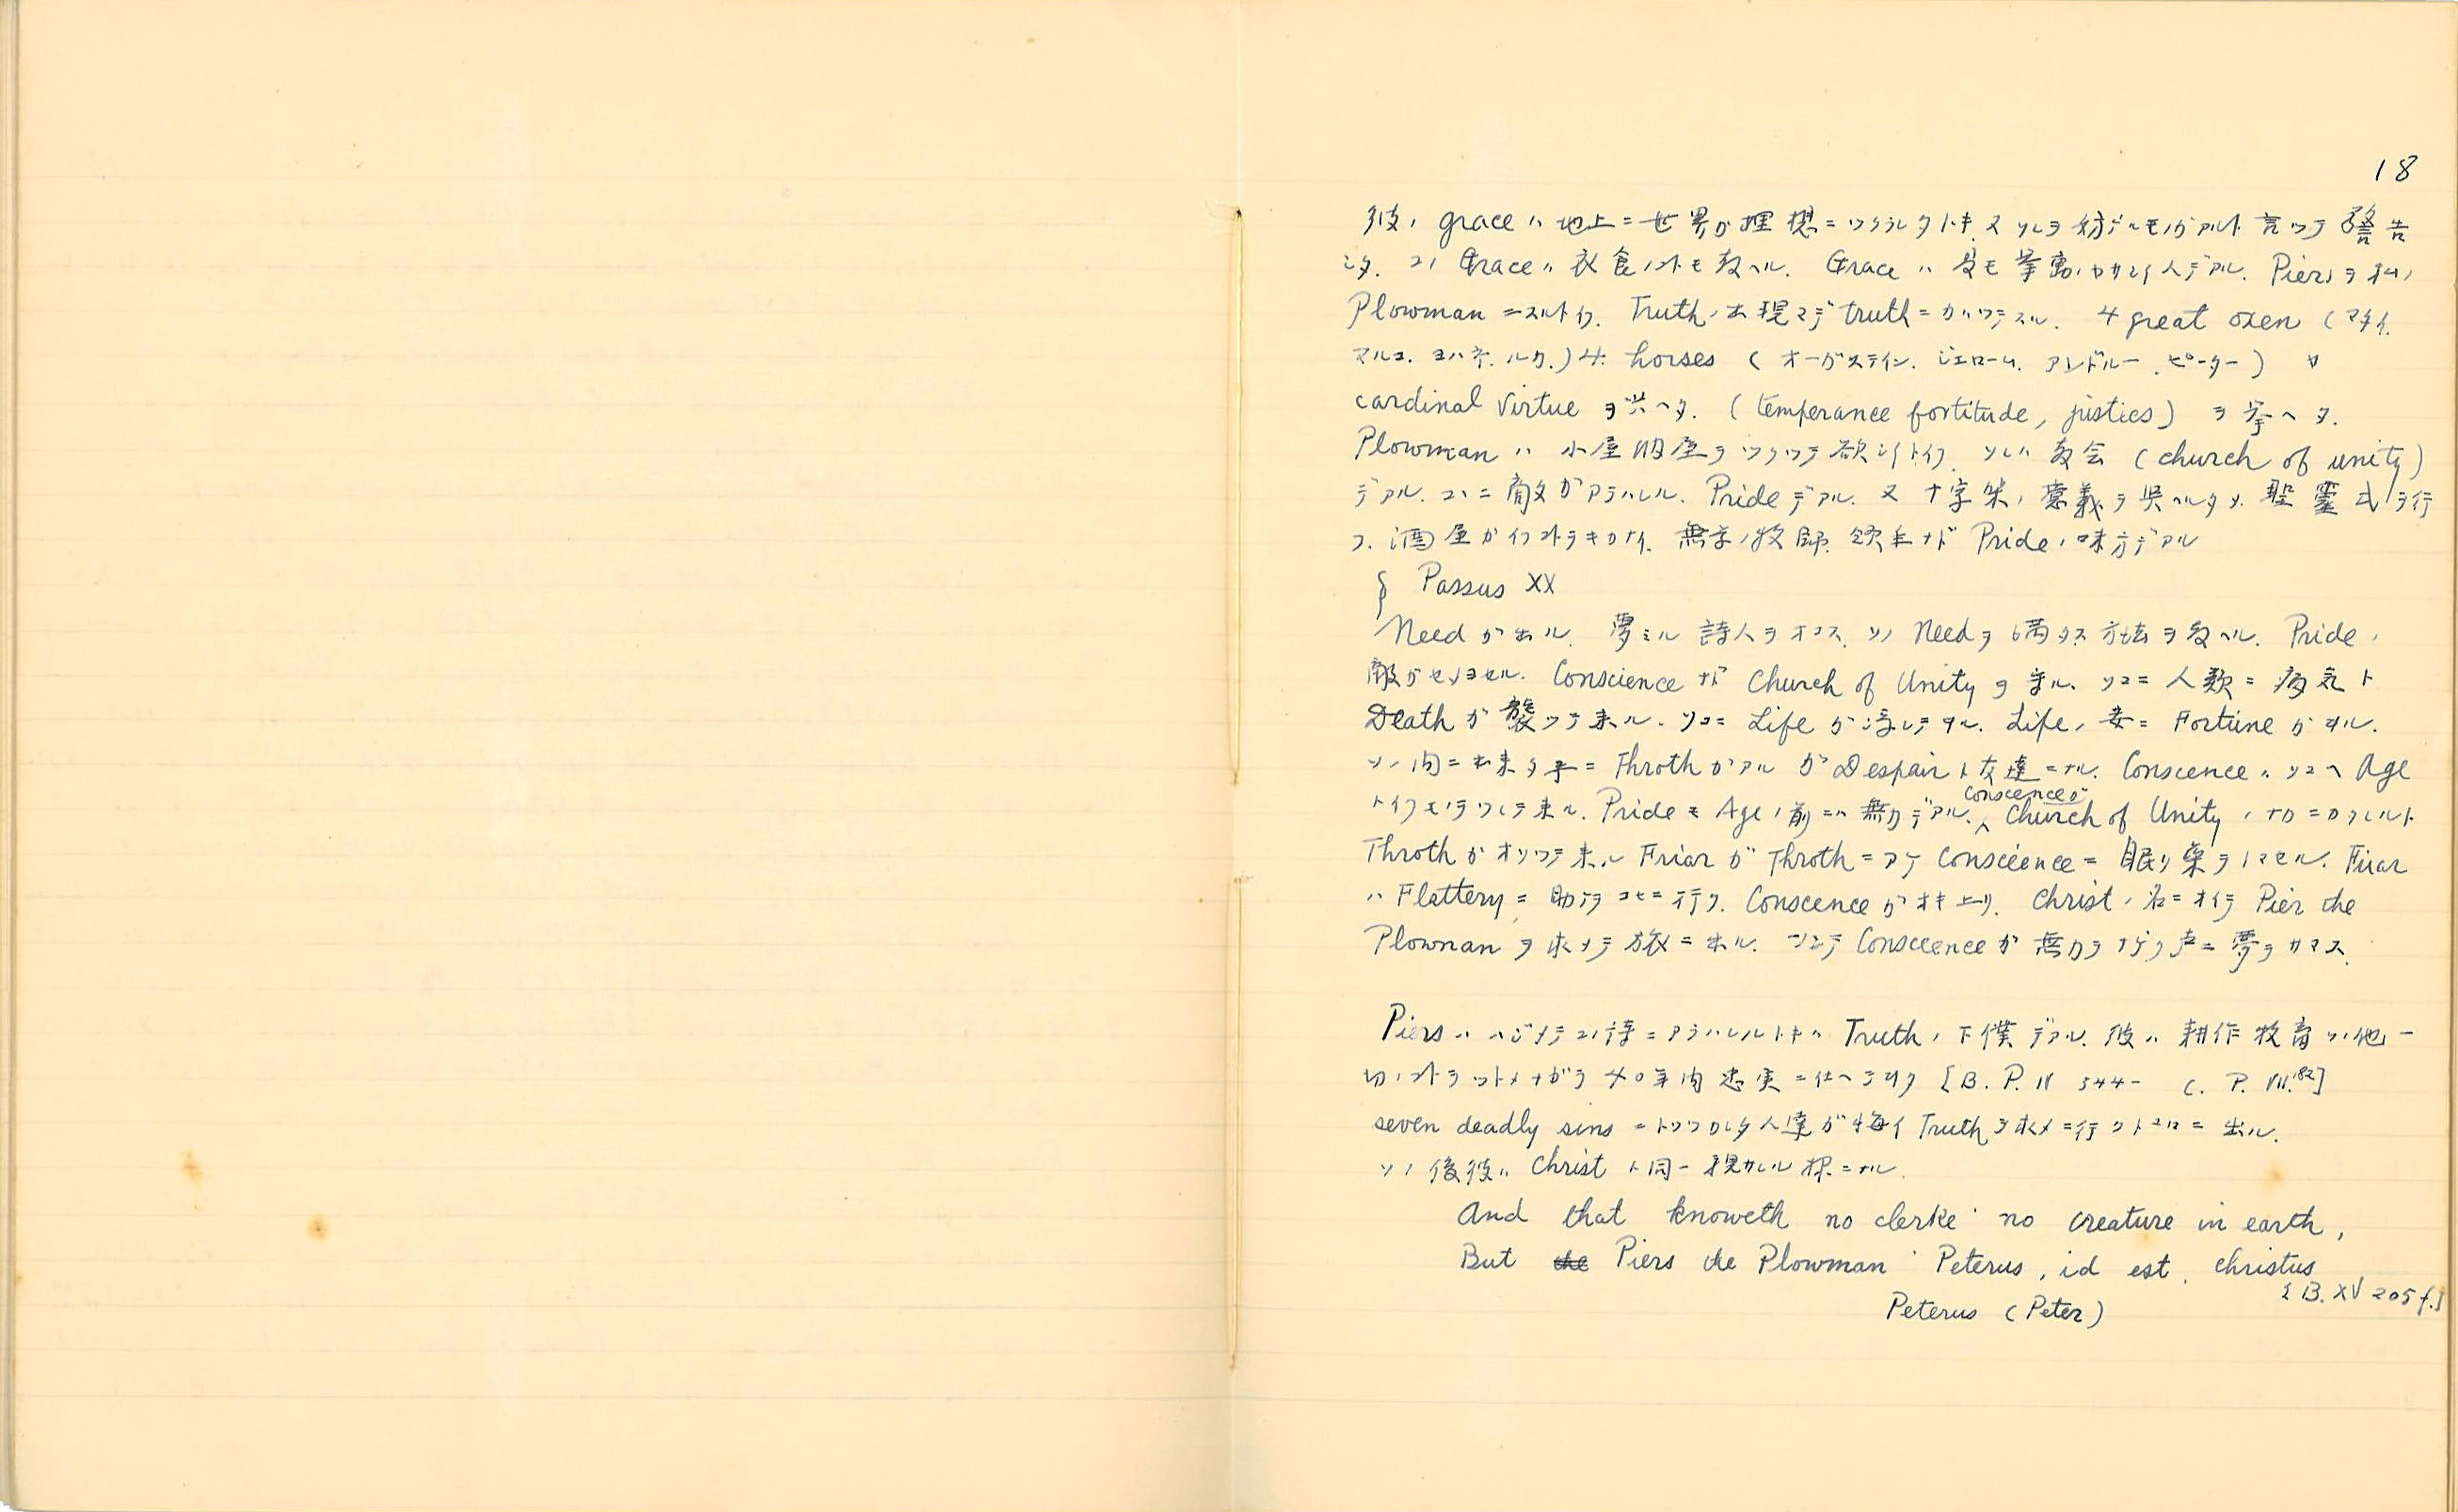 18
彼ノ grace ハ 地上ニ世界ガ理想ニツクラレタトキ又ソレヲ妨ゲルモノガアルト言ツテ警告
シタ. コノ Grace ハ 衣食ノコトモ教ヘル. Grace ハ 最モ 人デアル. Piers ヲ私ノ
Plowman ニスルトイフ. Truth ノ出現マデ truth ニカハツテスル. 4 great oxen (マタイ.
マルコ. ヨハネ. ルカ.) 4 horses ( オーガスティン. ジェローム. アンドルー. ピーター)
cardinal virtue ヲ与ヘタ. ( temperance fortitude, justics) ヲ
Plowman ハ 小屋 ヲツクツテ欲シイトイフ. ソレハ教会 (church of unity)
デアル. コヽニ敵ガアラハレル. Pride デアル. 又 十字架ノ意義ヲ 聖霊式ヲ行
フ. 酒屋ガイフコトヲキカナイ. 無学ノ牧師. 領主ナド Pride ノ味方デアル
§ Passus XX
Need ガ出ル. 夢ミル詩人ヲオコス. ソノ Need ヲ満タス方法ヲ教ヘル. Pride ノ
敵ガセメヨセル. Conscience ナド Church of Unity ヲ守ル. ソコニ人類ニ病気ト
Death ガ襲ツテ来ル. ソコニ Life ガ テヰル. Life ノ妻ニ Fortune ガヰル.
ソノ間ニ出来タ子ニ Throth ガアルガ Despair ト友達ニナル. Conscence ハ ソコヘ Age
トイフモノヲツレテ来ル. Pride モ Age ノ前ニハ無力デアル. Conscence ガ Church of Unity ノナカニカクレルト
Throth ガオソツテ来ル Friar ガ Throth ニアテ Consceence ニ眠リ薬ヲノマセル. Friar
ハ Flattery ニ助ヲコヒニ行ク. Conscence ガオキ上リ. Christ ノ名ニオイテ Pier the
Plowman ヲ求メテ旅ニ出ル. ソシテ Consccence ガ無力ヲナゲク声ニ夢ヲサマス.
Piers ハ ハジメテコノ詩ニアラハレルトキハ Truth ノ下僕デアル. 彼ハ耕作牧畜ソノ他一
切ノコトヲツトメナガラ 40年間忠実ニ仕ヘテヰタ [B. P. V 544- C. P. VIII. 182]
seven deadly sins ニトリツカレタ人達ガ悔イ Truth ヲ求メニ行クトコロニ出ル.
ソノ後彼ハ Christ ト同一視サレル様ニナル.
And that knoweth no clerke · no creature in earth,
But the Piers the Plowman · Peterus, id est, christus
[B. XV 205 f.]
Peterus (Peter)